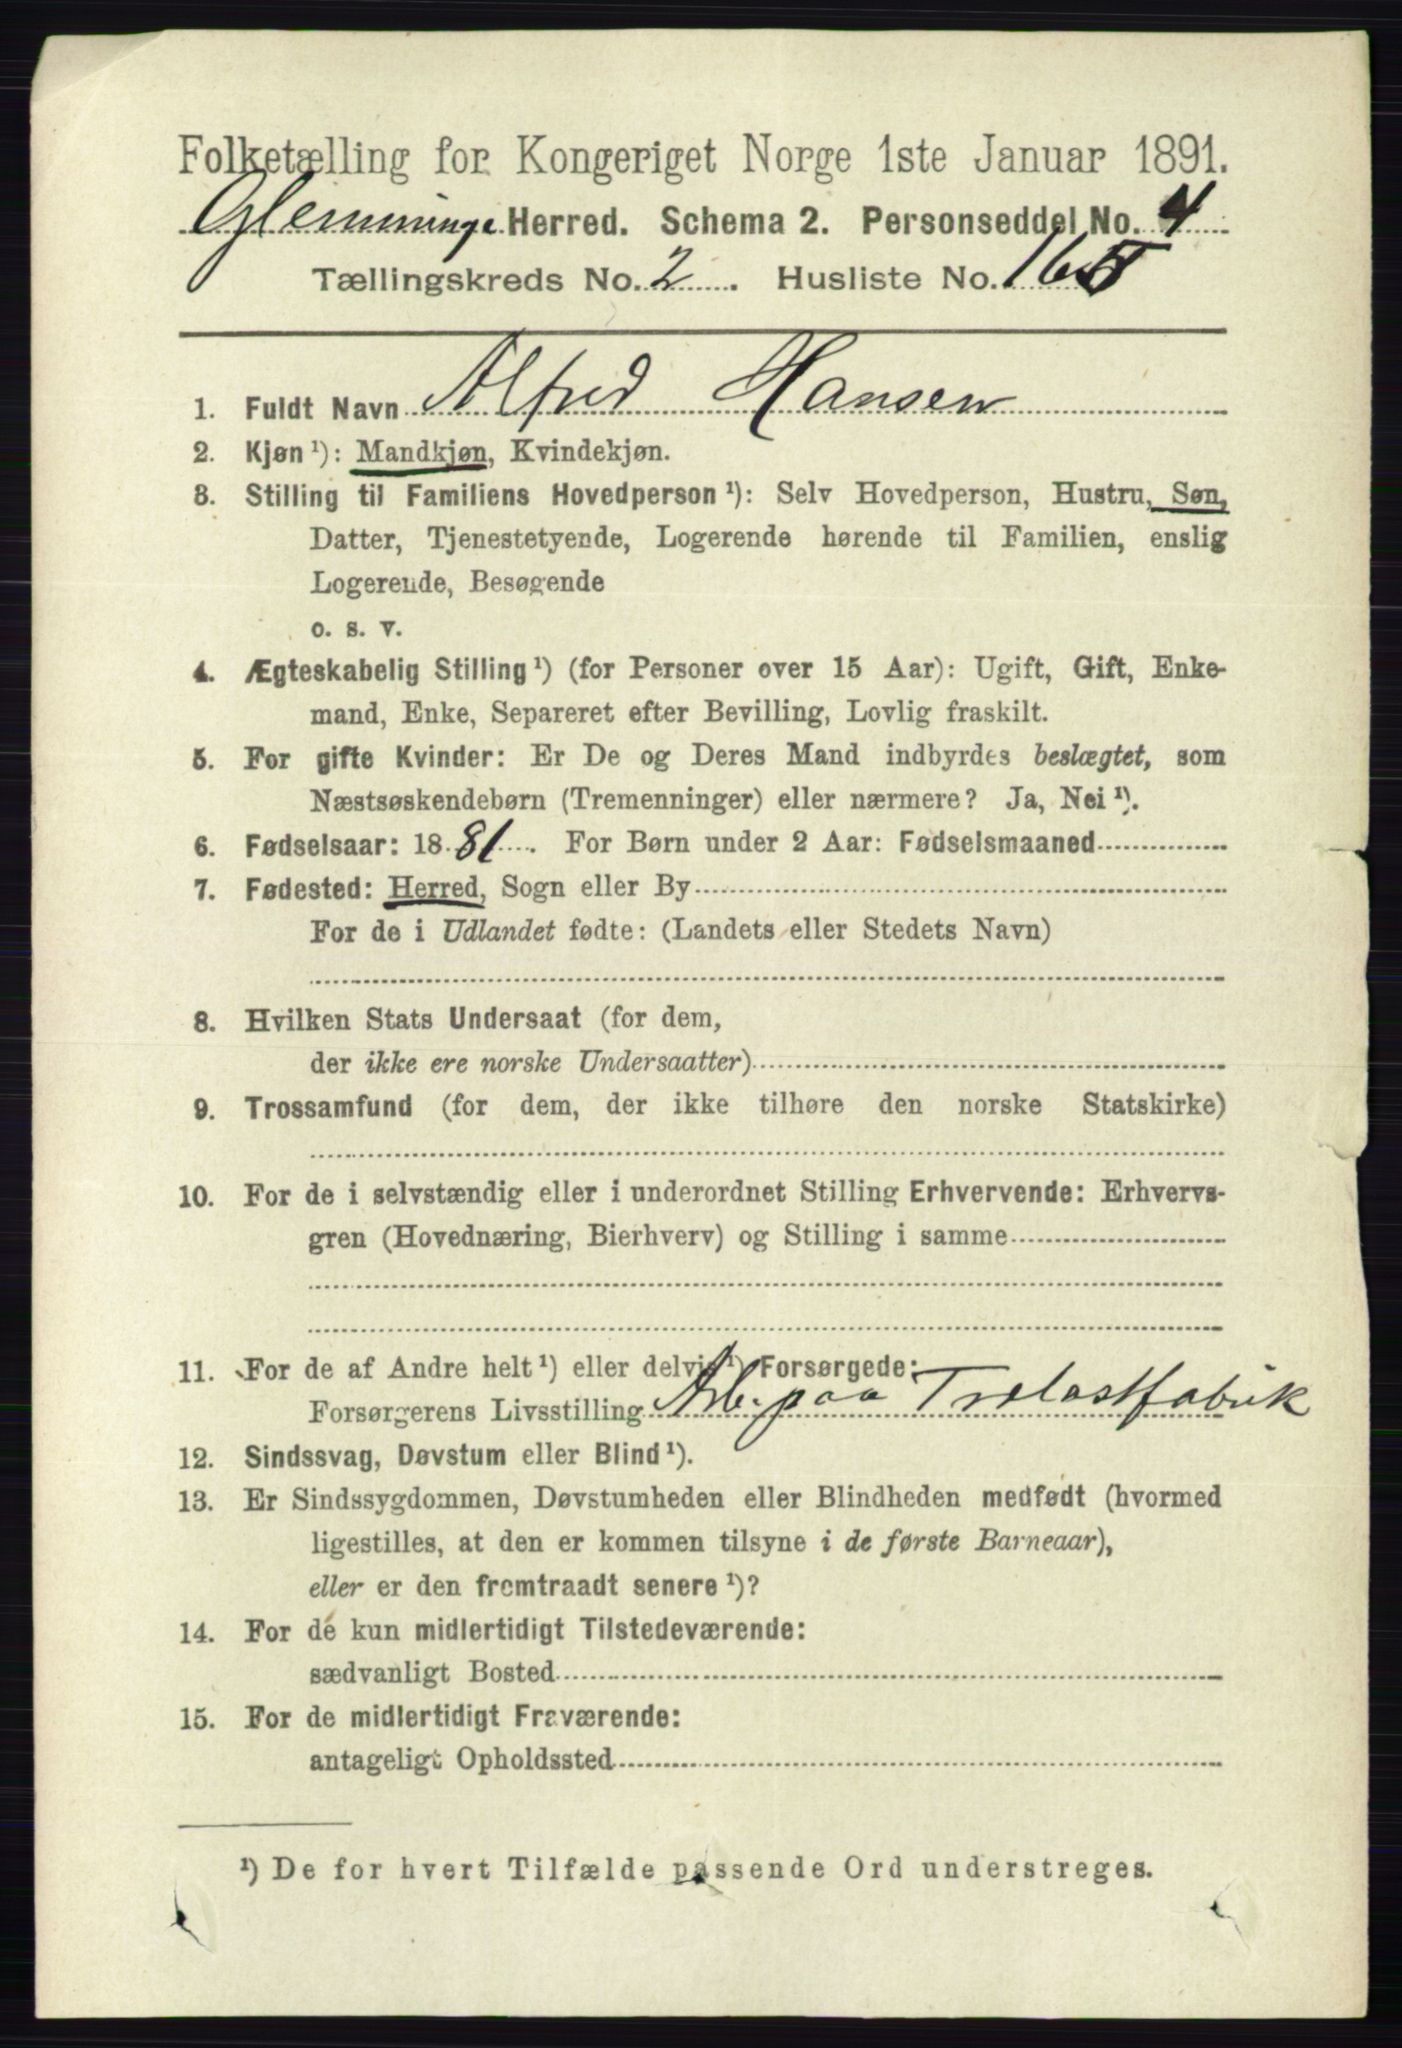 Folketælling for Kongeriget Norge 1ste Januar 1891.
Glemminge Herred. Schema 2. Personseddel No. 4
Tællingskreds No. 2 . Husliste No.
1. Fuldt Navn Alfred Hansen
2. Kjøn ¹): Mandkjøn, Kvindekjøn.
3. Stilling til Familiens Hovedperson ¹): Selv Hovedperson, Hustru, Søn,
Datter, Tjenestetyende, Logerende hørende til Familien, enslig
Logerende, Besøgende
o. s. v.
4. Ægteskabelig Stilling ¹) (for Personer over 15 Aar): Ugift, Gift, Enke-
mand, Enke, Separeret efter Bevilling, Lovlig fraskilt.
5. For gifte Kvinder: Er De og Deres Mand indbyrdes beslægtet, som
Næstsøskendebørn (Tremenninger) eller nærmere? Ja, Nei ¹).
6. Fødselsaar: 1881 . For Børn under 2 Aar: Fødselsmaaned
7. Fødested: Herred, Sogn eller By
For de i Udlandet fødte: (Landets eller Stedets Navn)
8. Hvilken Stats Undersaat (for dem,
der ikke ere norske Undersaatter)
9. Trossamfund (for dem, der ikke tilhøre den norske Statskirke)
10. For de i selvstændig eller i underordnet Stilling Erhvervende: Erhvervs-
gren (Hovednæring, Bierhverv) og Stilling i samme
11. For de af Andre helt ¹) eller delvis ¹) Forsørgede:
Forsørgerens Livsstilling Arb. paa Trælastfabrik
12. Sindssvag, Døvstum eller Blind ¹).
13. Er Sindssygdommen, Døvstumheden eller Blindheden medfødt (hvormed
ligestilles, at den er kommen tilsyne i de første Barneaar),
eller er den fremtraadt senere ¹)?
14. For de kun midlertidigt Tilstedeværende:
sædvanligt Bosted
15. For de midlertidigt Fraværende:
antageligt Opholdssted
¹) De for hvert Tilfælde passende Ord understreges.